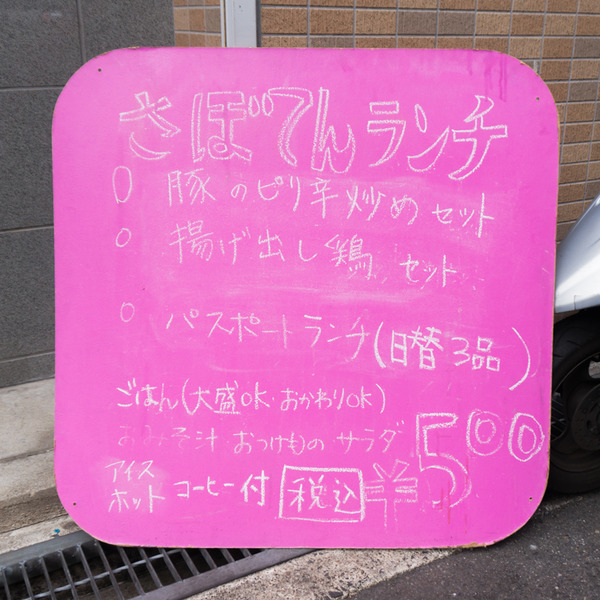 さぼてんランチ
○ 豚のピリ辛炒めセット
○ 揚げ出し鶏 セット
○ パスポートランチ(日替3品)
ごはん(大盛OK・おかわりOK)
おみそ汁 おつけもの サラダ
アイス
ホット コーヒー付 税込 ¥500